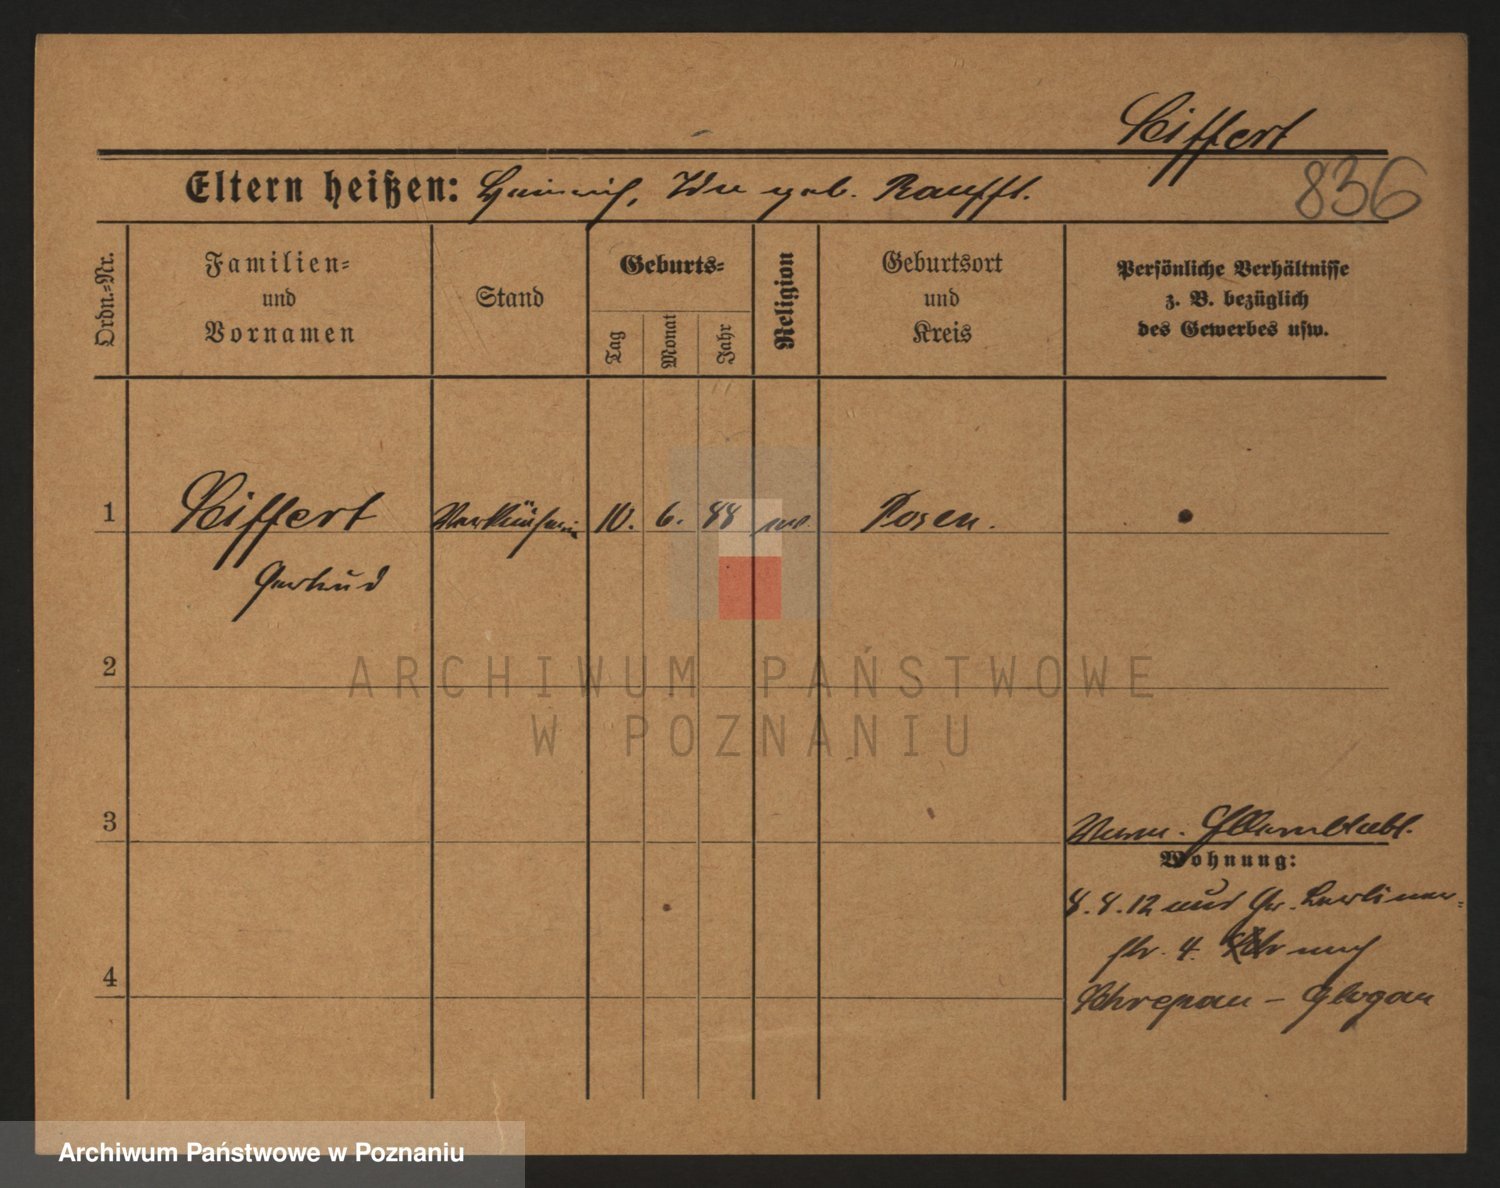 Seiffert
836
Eltern heißen: Heinrich, Ida geb. Raufft.
Ordn.=Nr.
Familien=
und
Vornamen
Stand
Geburts=
Tag
Monat
Jahr
Religion
Geburtsort
und
Kreis
Persönliche Verhältnisse
z. B. bezüglich
des Gewerbes usw.
1
Seiffert
Verkäuferin
10.
6.
88
ev
Posen.
Gertrud
2
ARCHIWUM PAŃSTWOWE
W POZNANIU
3
Wohnung:
8.8.12 aus Gr. Berliner=
str. 4. nach
4
Schrepau - Glogau
Archiwum Państwowe w Poznaniu